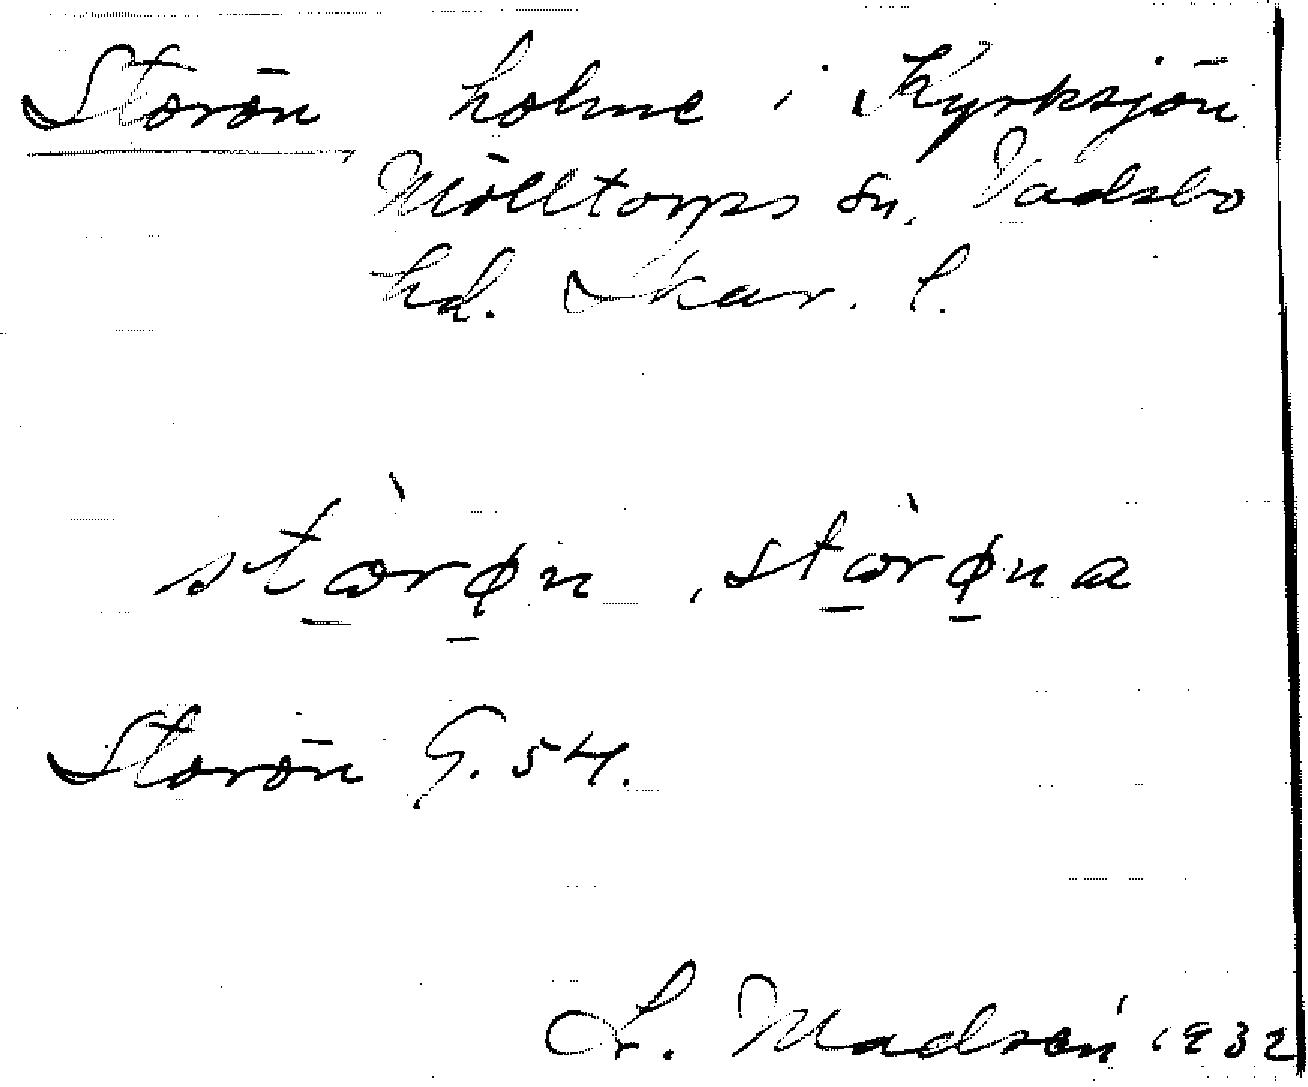 Storön, holme i Kyrksjön
Mölltorps sn. Vadsbo
hd. Skar. l.
stæ̀røn, stæ̀røna
Storön G. 54.
L. Madsén 1932